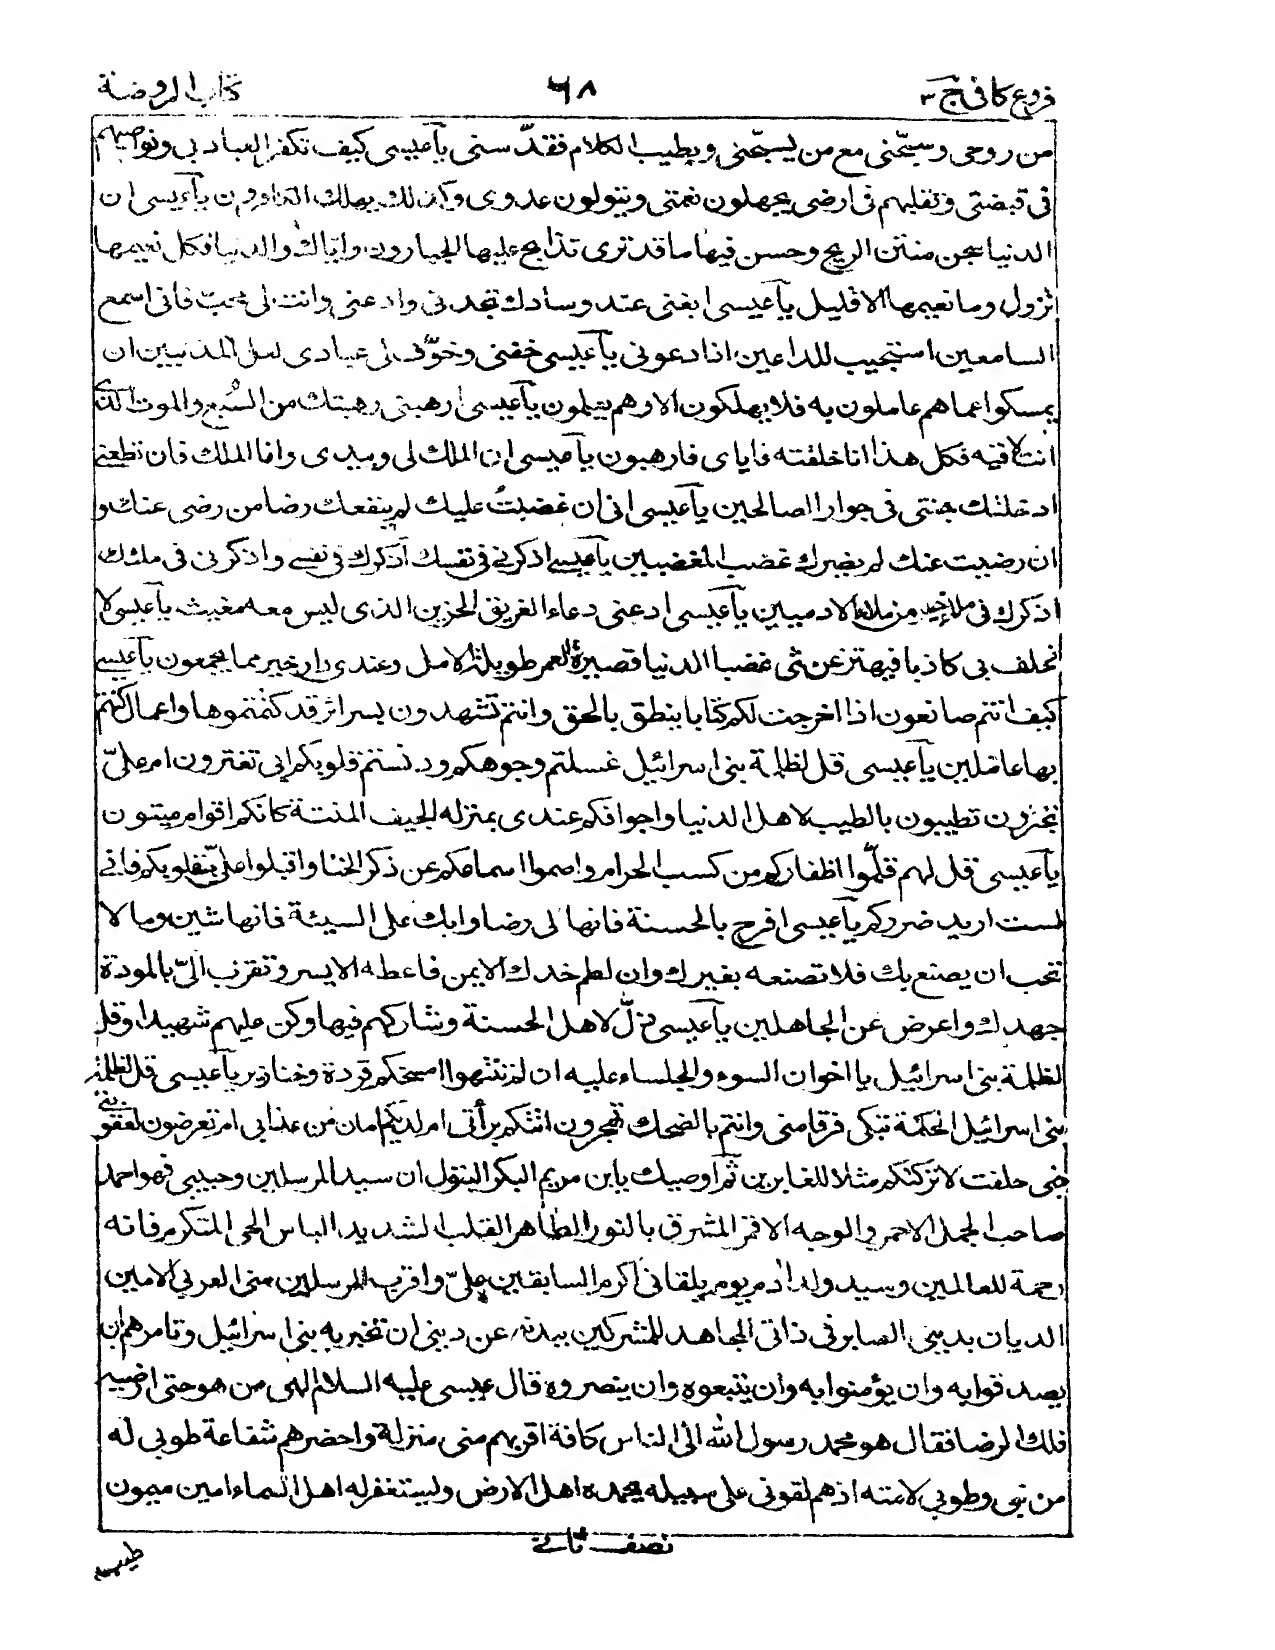 فروع كافى ج ٣
٦٨
كتاب الروضة
من روحى وسبّحنى مع من يسبّحنى وبطيب الكلام فقدّسنى يآعيسى كيف تكفر العباد بى ونواصيهم
فى قبضتى وتقلبهم فى ارضى يجهلون نعمتى ويتولون عدوى وكذلك يهلك الكافرون يآعيسى ان
الدنيا سجن منتن الريح وحسن فيها ما قد ترى تذابح عليها الجبارون واياك والدنيا فكل نعيمها
تزول وما نعيمها الا قليل يآعيسى ابغنى عند وسادك تجدنى وادعنى وانت لى محب فانى اسمع
السامعين استجيب للداعين اذا دعونى يآعيسى خفنى وخوّف بى عبادى لعل المذنبين ان
يمسكوا عما هم عاملون به فلا يهلكون الا وهم يعلمون يآعيسى ارهبنى رهبتك من السّبُع والموت الذى
انت لاقيه فكل هذا انا خلقته فاياى فارهبون يآعيسى ان الملك لى وبيدى وانا الملك فان تطعنى
ادخلتك جنتى فى جوار الصالحين يآعيسى انى ان غضبتُ عليك لم ينفعك رضا من رضى عنك و
ان رضيت عنك لم يضرك غضب المغضبين يآعيسى اذكرنى فى نفسك اذكرك فى نفسى واذكرنى فى ملئك
اذكرك فى ملاء خير من ملاء الادميين يآعيسى ادعنى دعاء الغريق الحزين الذى ليس معه مغيث يآعيسى لا
تحلف بى كاذبا فيهتز عرشى غضبا الدنيا قصيرة العمر طويلة الامل وعندى دار خير مما يجمعون يآعيسى
كيف انتم صانعون اذا اخرجت لكم كتابا ينطق بالحق وانتم تشهدون بسرائر قد كتمتموها واعمال كنتم
بها عاملين يآعيسى قل لظلمة بنى اسرائيل غسلتم وجوهكم ودنستم قلوبكم ابى تغترون ام علىّ
تجترون تطيبون بالطيب لاهل الدنيا واجوافكم عندى بمنزلة الجيف المنتنة كانكم اقوام ميتون
يآعيسى قل لهم قلّموا اظفاركم من كسب الحرام واصموا اسماعكم عن ذكر الخنا واقبلوا علىّ بقلوبكم فانى
لست اريد ضرركم يآعيسى افرح بالحسنة فانها لى رضا وابك على السيئة فانها شين وما لا
تحب ان يصنع بك فلا تصنعه بغيرك وان لطم خدك الايمن فاعطه الايسر وتقرب الىّ بالمودة
جهدك واعرض عن الجاهلين يآعيسى ذلّ لاهل الحسنة وشاركهم فيها وكن عليهم شهيدا وقل
لظلمة بنى اسرائيل يا اخوان السوء والجلساء عليه ان لم تنتهوا امسخكم قردة وخنازير يآعيسى قل لظلمة
بنى اسرائيل الحكمة تبكى فرقا منى وانتم بالضحك تهجرون اتتكم برأتى ام لديكم امان من عذابى ام تعرضون لعقوبتى
فبى حلفت لاتركنكم مثلا للغابرين ثم اوصيك يابن مريم البكر البتول ان سيد المرسلين وحبيبى فهو احمد
صاحب الجمل الاحمر والوجه الاقمر المشرق بالنور الطاهر القلب الشديد الباس الحى المتكرم فانه
رحمة للعالمين وسيد ولد ادم يوم يلقانى اكرم السابقين علىّ واقرب المرسلين منى العربى الامين
الديان بدينى الصابر فى ذاتى المجاهد المشركين بيده عن دينى ان تخبر به بنى اسرائيل وتامرهم ان
يصدقوا به وان يؤمنوا به وان يتبعوه وان ينصروه قال عيسى عليه السلام الهى من هو حتى ارضيه
فلك الرضا فقال هو محمد رسول الله الى الناس كافة اقربهم منى منزلة واحضرهم شفاعة طوبى له
من نبى وطوبى لامته اذ هم لقونى على سبيله يحمده اهل الارض ويستغفر له اهل السماء امين ميمون
نصف ثانى
طيب